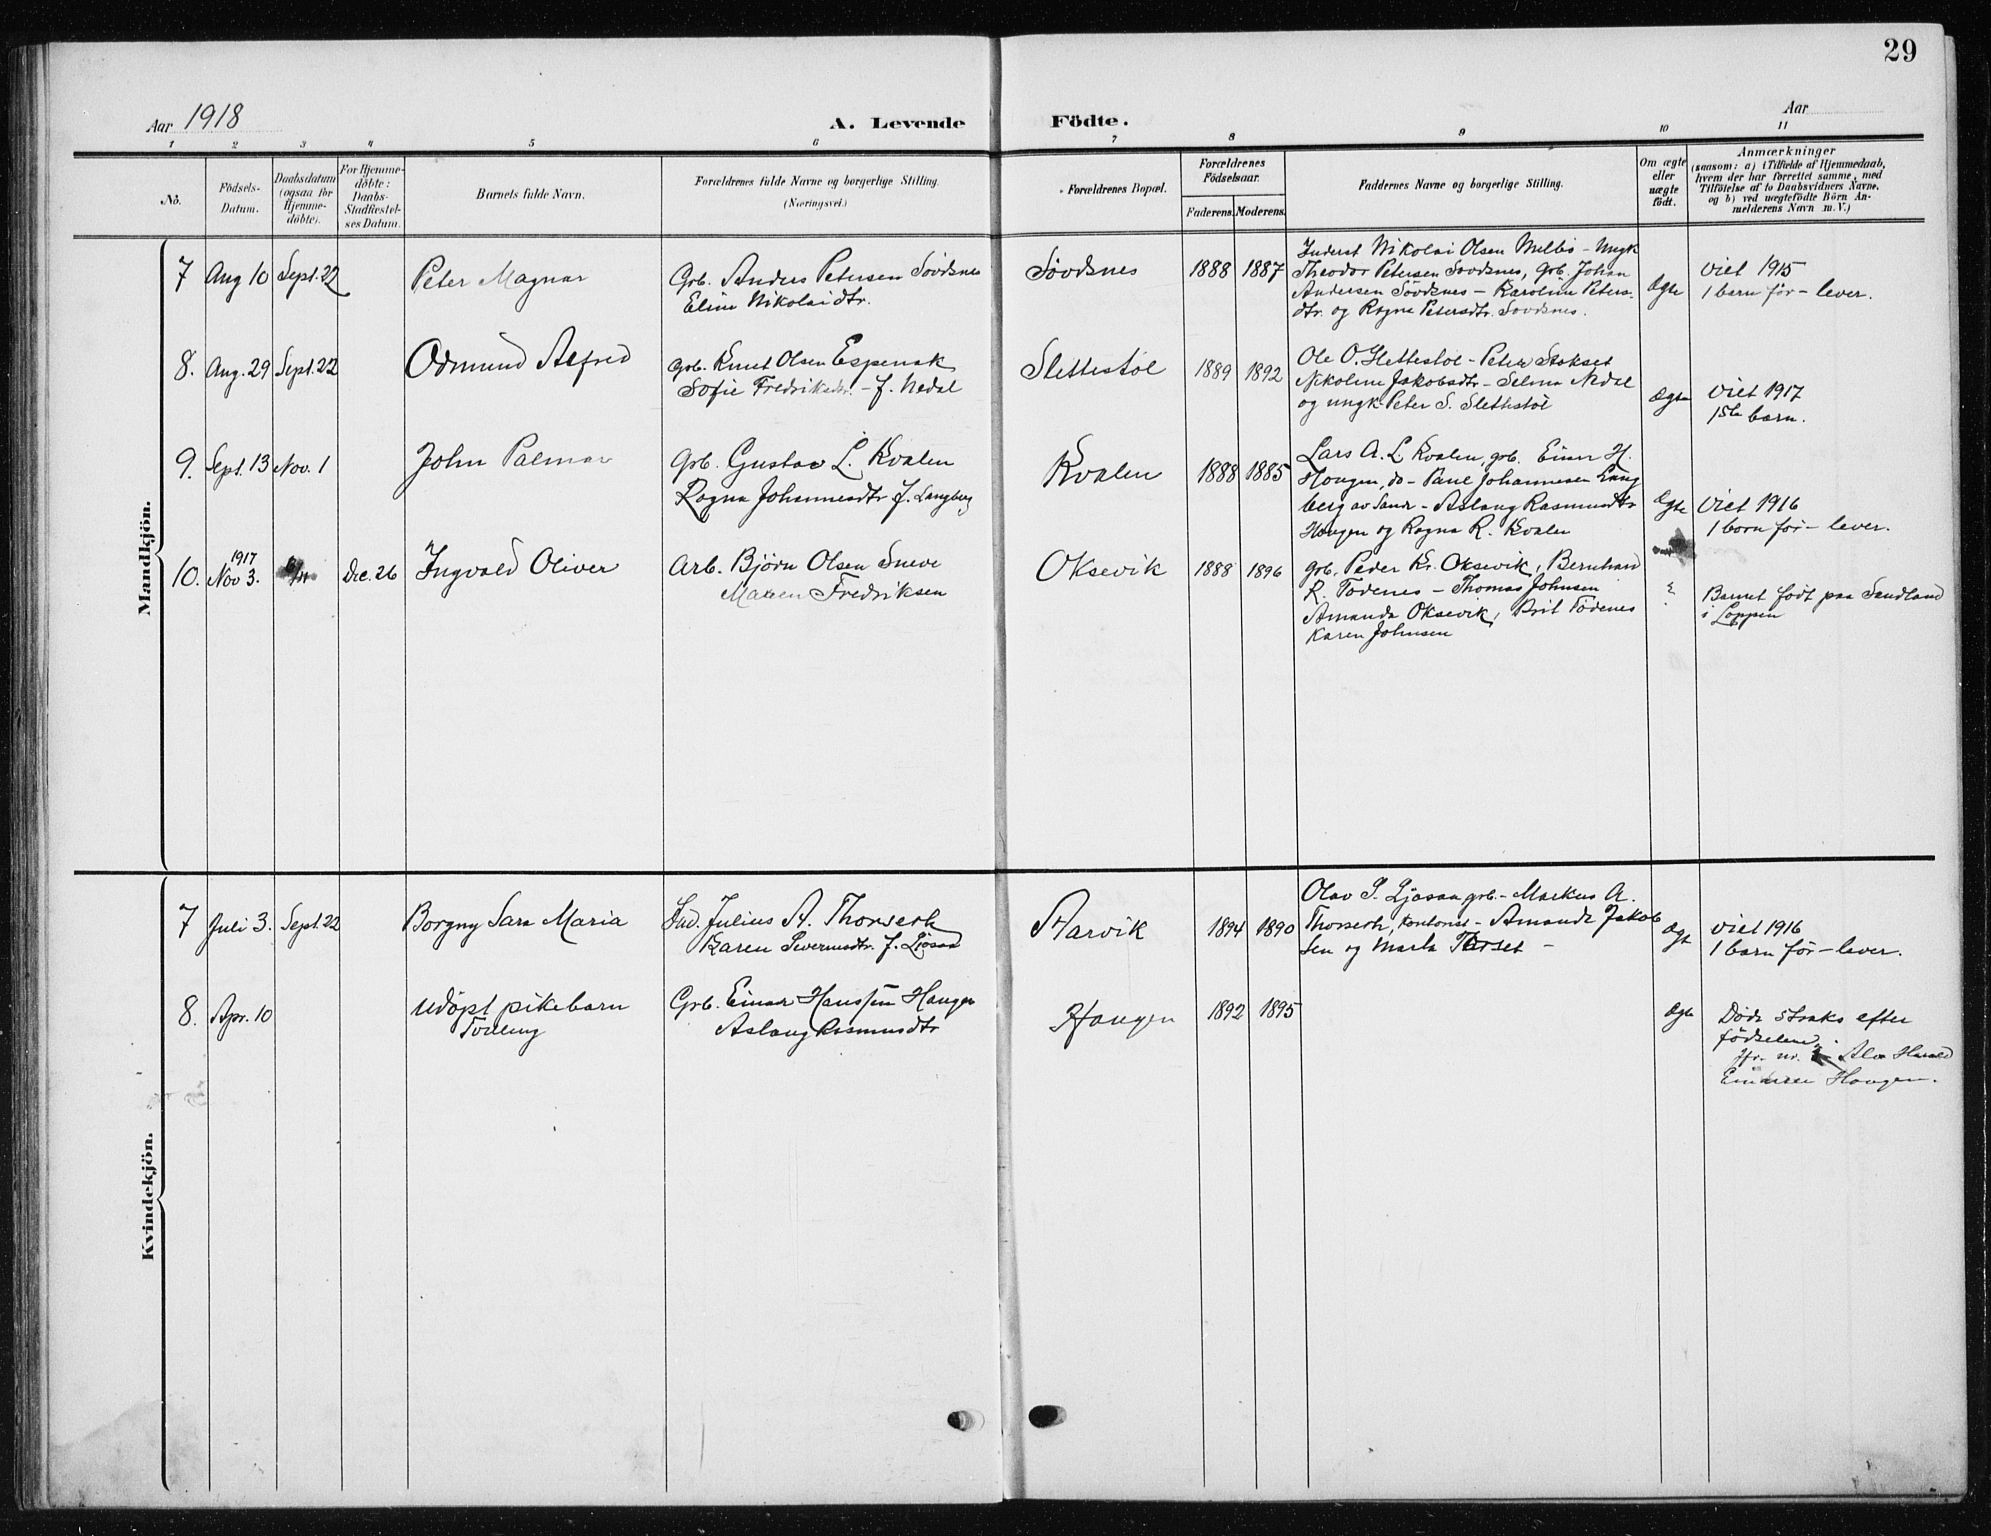 29
Aar 1918
A. Levende Födte.
Aar
1 2 3 4 5 6 7 8 9 10 11
No.
Födsels-
Datum.
Daabsdatum
(ogsaa for
Hjemme-
döbte).
For Hjemme-
döbte:
Daabs-
Stadfæstel-
ses Datum.
Barnets fulde Navn.
Forældrenes fulde Navne og borgerlige Stilling.
(Næringsvei.)
Forældrenes Bopæl.
Forældrenes
Födselsaar.
Faderens. Moderens.
Faddernes Navne og borgerlige Stilling.
Om ægte
eller
uægte
födt.
Anmærkninger
(saasom: a) i Tilfælde af Hjemmedaab,
hvem der har forrettet samme, med
Tilföielse af to Daabsvidners Navne,
og b) ved uægtefödte Börn An-
melderens Navn m. V.)
Mandkjön.
7 Aug 10 Sept. 22 Peter Magnar
Grb. Anders Petersen Sövdsnes
Eline Nikolaidtr.
Sövdsnes 1888 1887
Inderst Nikolai Olsen Melbö - Ungk
Theodor Petersen Sovdsnes, Grb. Johan
Andersen Sövdsnes - Karoline Peters-
dtr. og Ragna Petersdtr. Sovdsnes.
Ægte
Viet 1915
1 barn før - lever.
8. Aug. 29 Sept. 22 Odmund Alfred
Grb. Knut Olsen Espenak
Sofie Fredriksdtr. - f. Nedal
Slettestöl 1889 1892
Ole O. Slettestöl - Peter Stokset
Nikoline Jakobsdtr - Selma Nedal
og ungk. Peter S. Slettestöl
Ægte
Viet 1917
1ste barn.
9. Sept. 13 Nov. 1 John Palmar
Grb. Gustav L. Kvalen
Ragna Johannesdtr f. Langberg
Kvalen 1888 1885
Lars A. L Kvalen, grb. Einar H.
Hougen, do - Paul Johannesen Lang
berg av Sande - Aslaug Rasmusdtr
Hougen og Ragna R. Kvalen
Ægte
Viet 1916
1 barn før - lever.
10. 1917
Nov 3. Dec. 26 Ingvald Oliver
Arb. Bjørn Olsen Sneve
Maren Fredriksen
Oksevik 1888 1896
grb. Peder Kr. Oksevik, Bernhard
R. Todenes - Thomas Johnsen
Amanda Oksevik, Brit Tödenes
Karen Johnsen
?
Barnet født paa Sandland
i Loppen
Kvindekjön.
7 Juli 3. Sept. 22 Borgny Sara Maria
Julius A. Thorseth
Karen Severinsdtr. f. Ljösaa
Aarvik 1894 1890
Olav P. Ljosaa grb. - Markus A.
Thorseth, kontorist - Amanda Jakob
sen og Marta Thorset -
Ægt
Viet 1916
1 barn før - lever.
8. Apr. 10 Udöpt pikebarn
Tvilling
Grb. Einar Hanssen Haugen
Aslaug Rasmusdtr
Haugen 1892 1895
Ægte
Døde straks efter
födselen.
Jfr. nr. Alv Harald
Einarsen Hougen.